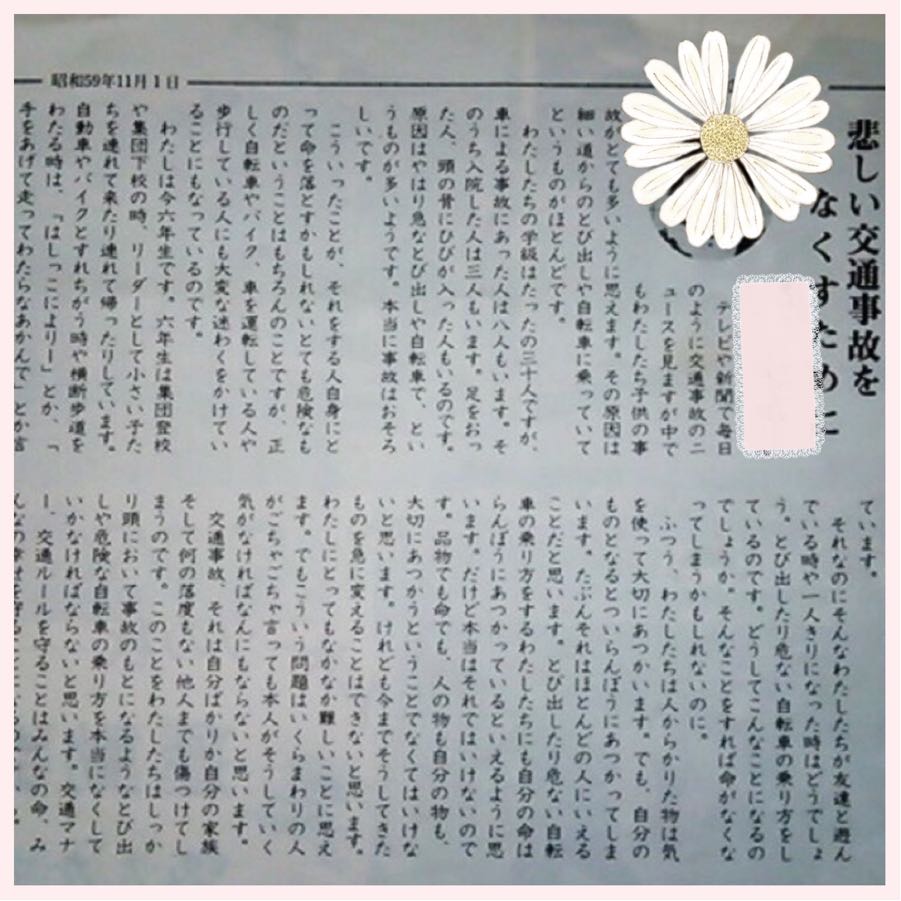 昭和59年11月1日
悲しい交通事故を
なくすために
テレビや新聞で毎日
のように交通事故のニ
ュースを見ますが中で
もわたしたち子供の事
故がとても多いように思えます。その原因は
細い道からのとび出しや自転車に乗っていて
というものがほとんどです。
わたしたちの学級はたったの三十人ですが、
車による事故にあった人は八人もいます。そ
のうち入院した人は三人もいます。足をおっ
た人、頭の骨にひびが入った人もいるのです。
原因はやはり急なとび出しや自転車で、とい
うものが多いようです。本当に事故はおそろ
しいです。
こういったことが、それをする人自身にと
って命を落とすかもしれないとても危険なも
のだということはもちろんのことですが、正
しく自転車やバイク、車を運転している人や
歩行している人にも大変な迷わくをかけてい
ることにもなっているのです。
わたしは今六年生です。六年生は集団登校
や集団下校の時、リーダーとして小さい子た
ちを連れて来たり連れて帰ったりしています。
自動車やバイクとすれちがう時や横断歩道を
わたる時は、「はしっこによりー」とか、「
手をあげて走ってわたらなあかんで」とか言
ています。
それなのにそんなわたしたちが友達と遊ん
でいる時や一人きりになった時はどうでしょ
う。とび出したり危ない自転車の乗り方をし
ているのです。どうしてこんなことになるの
でしょうか。そんなことをすれば命がなくな
ってしまうかもしれないのに。
ふつう、わたしたちは人からかりた物は気
を使って大切にあつかいます。でも、自分の
ものとなるとついらんぼうにあつかってしま
います。たぶんそれはほとんどの人にいえる
ことだと思います。とび出したり危ない自転
車の乗り方をするわたしたちにも自分の命は
らんぼうにあつかっているといえるように思
います。だけど本当はそれではいけないので
す。品物でも命でも、人の物も自分の物も、
大切にあつかうということでなくてはいけな
いと思います。けれども今までそうしてきた
ものを急に変えることはできないと思います。
わたしにとってもなかなか難しいことに思え
ます。でもこういう問題はいくらまわりの人
がごちゃごちゃ言っても本人がそうしていく
気がなければなんにもならないと思います。
交通事故、それは自分ばかりか自分の家族
そして何の落度もない他人までも傷つけてし
まうのです。このことをわたしたちはしっか
り頭において事故のもとになるようなとび出
しや危険な自転車の乗り方を本当になくして
いかなければならないと思います。交通マナ
ー、交通ルールを守ることはみんなの命、み